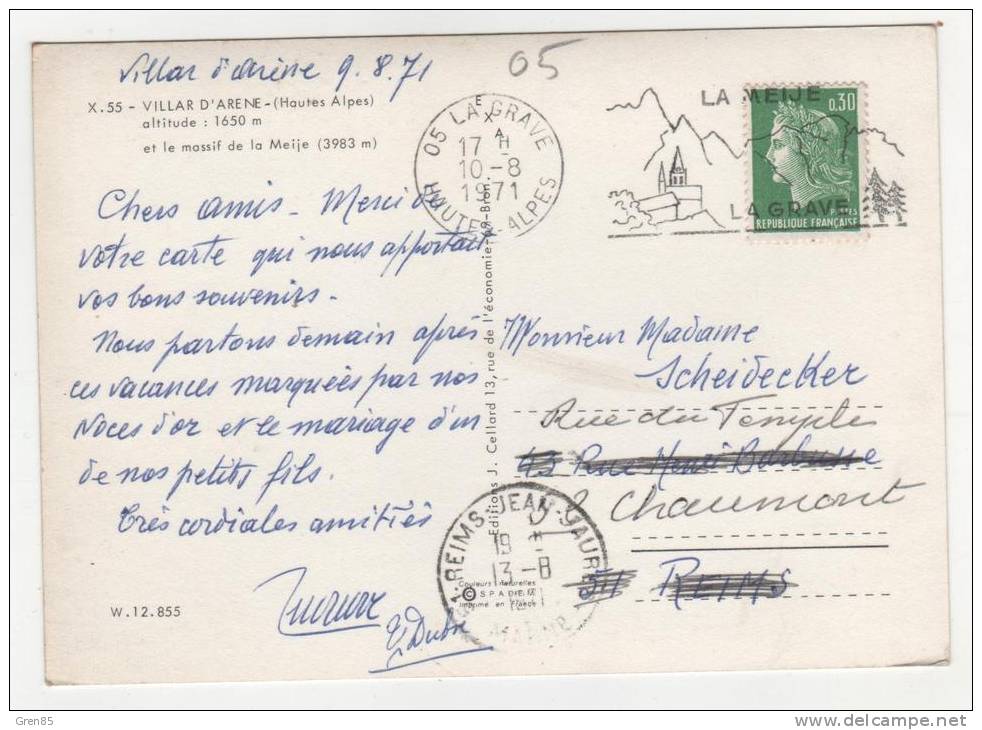 Villar d'arène 9.8.71
05
X.55 - VILLAR D'ARENE - (Hautes Alpes)
altitude : 1650 m
et le massif de la Meije (3983 m)
05 LA GRAVE
17 H
10-8
1971
HAUTES ALPES
LA MEIJE
LA GRAVE
0,30
POSTES
REPUBLIQUE FRANÇAISE
Chers amis - Merci de
votre carte qui nous apportait
vos bons souvenirs -
Nous partons demain après
ces vacances marquées par nos
Noces d'or et le mariage d'un
de nos petits fils.
Très cordiales amitiés
Dubre
W.12.855
Editions J. Cellard 13, rue de l'économie-69-Bron.
Couleurs naturelles
© S.P.A.D.E.M
Imprimé en France
Monsieur Madame
Scheidecker
Rue du Temple
43 Rue Henri Barbusse
Chaumont
51 REIMS
REIMS-JEAN-JAURES
19 H
13-8
MARNE
Gren85
http://www.delcampe.net